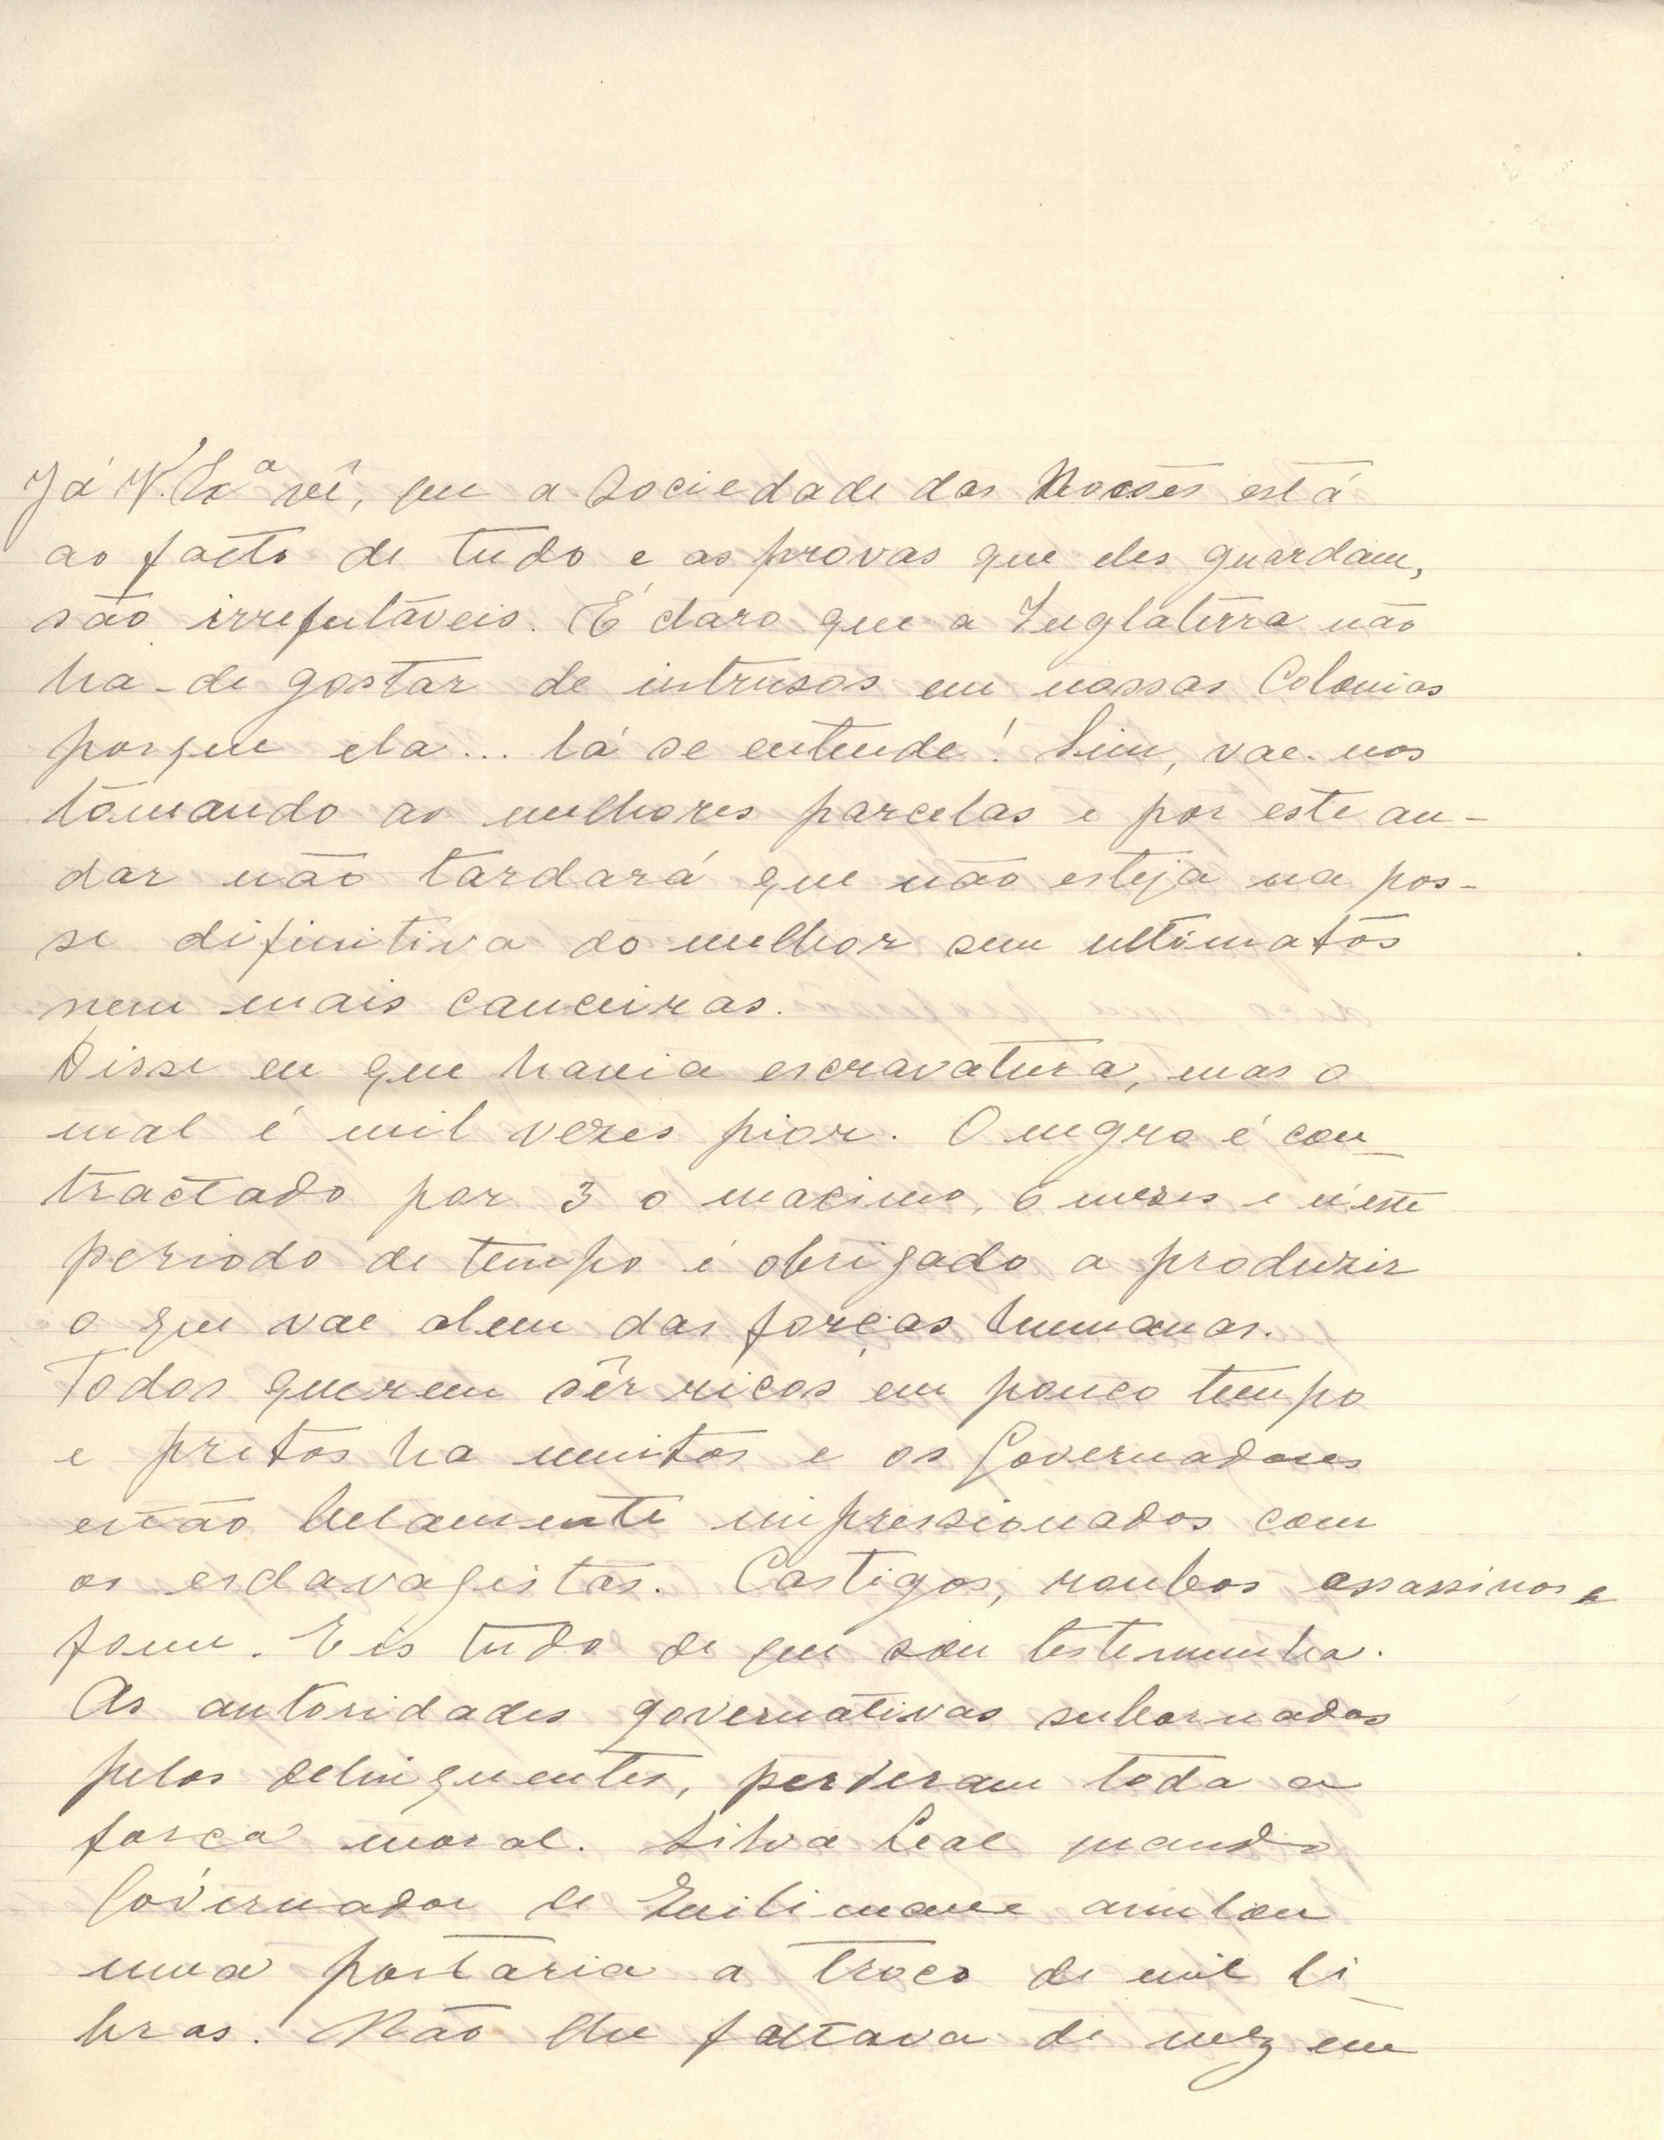 Já V. Exª vê, que a Sociedade das Nações está
ao facto de tudo e as provas que eles guardam,
são irrefutáveis. É claro que a Inglaterra não
ha-de gostar de intrusos em nossas Colonias
porque ela... lá se entende! Sim, vae-nos
tomando as melhores parcelas e por este an-
dar não tardará que não esteja na pos-
se difinitiva do melhor sem ultimatos
nem mais canceiras.
Disse eu que havia escravatura, mas o
mal é mil vezes pior. O negro é con-
tractado por 3 o maximo, 6 mezes e n'este
periodo de tempo é obrigado a produzir
o que vae alem das forças humanas.
Todos querem sêr ricos em pouco tempo
e pretos ha muitos e os Governadores
estão belamente impressionados com
os esclavagistas. Castigos, roubos assassinos e
fome. Eis tudo de que sou testemunha.
As autoridades governativas subornadas
pelos delinquentes, perderam toda a
força moral. Silva Leal quando
Governador de Quilimane anulou
uma portaria a troco de mil li-
bras. Não lhe faltava de vez em